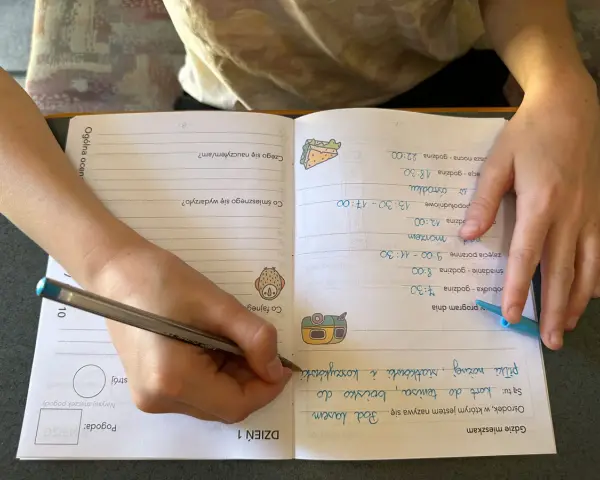 Gdzie mieszkam
Ośrodek, w którym jestem nazywa się Pod lasem
Są tu: kort do tenisa, boisko do
piłki nożnej, siatkówki i koszykówki
program dnia
obudka - godzina 7:30
śniadanie - godzina 8:00
zajęcia poranne 9:00 - 11:30
morzem
12:00
popołudniowe 13:30 - 17:00
w ośrodku
acja - godzina 18:30
isza nocna - godzina 22:00
DZIEŃ 1
Pogoda:
Narysuj znaczek pogody
strój
10
Co fajneg
Co śmiesznego się wydarzyło?
Czego się nauczyłem/am?
Ogólna ocen